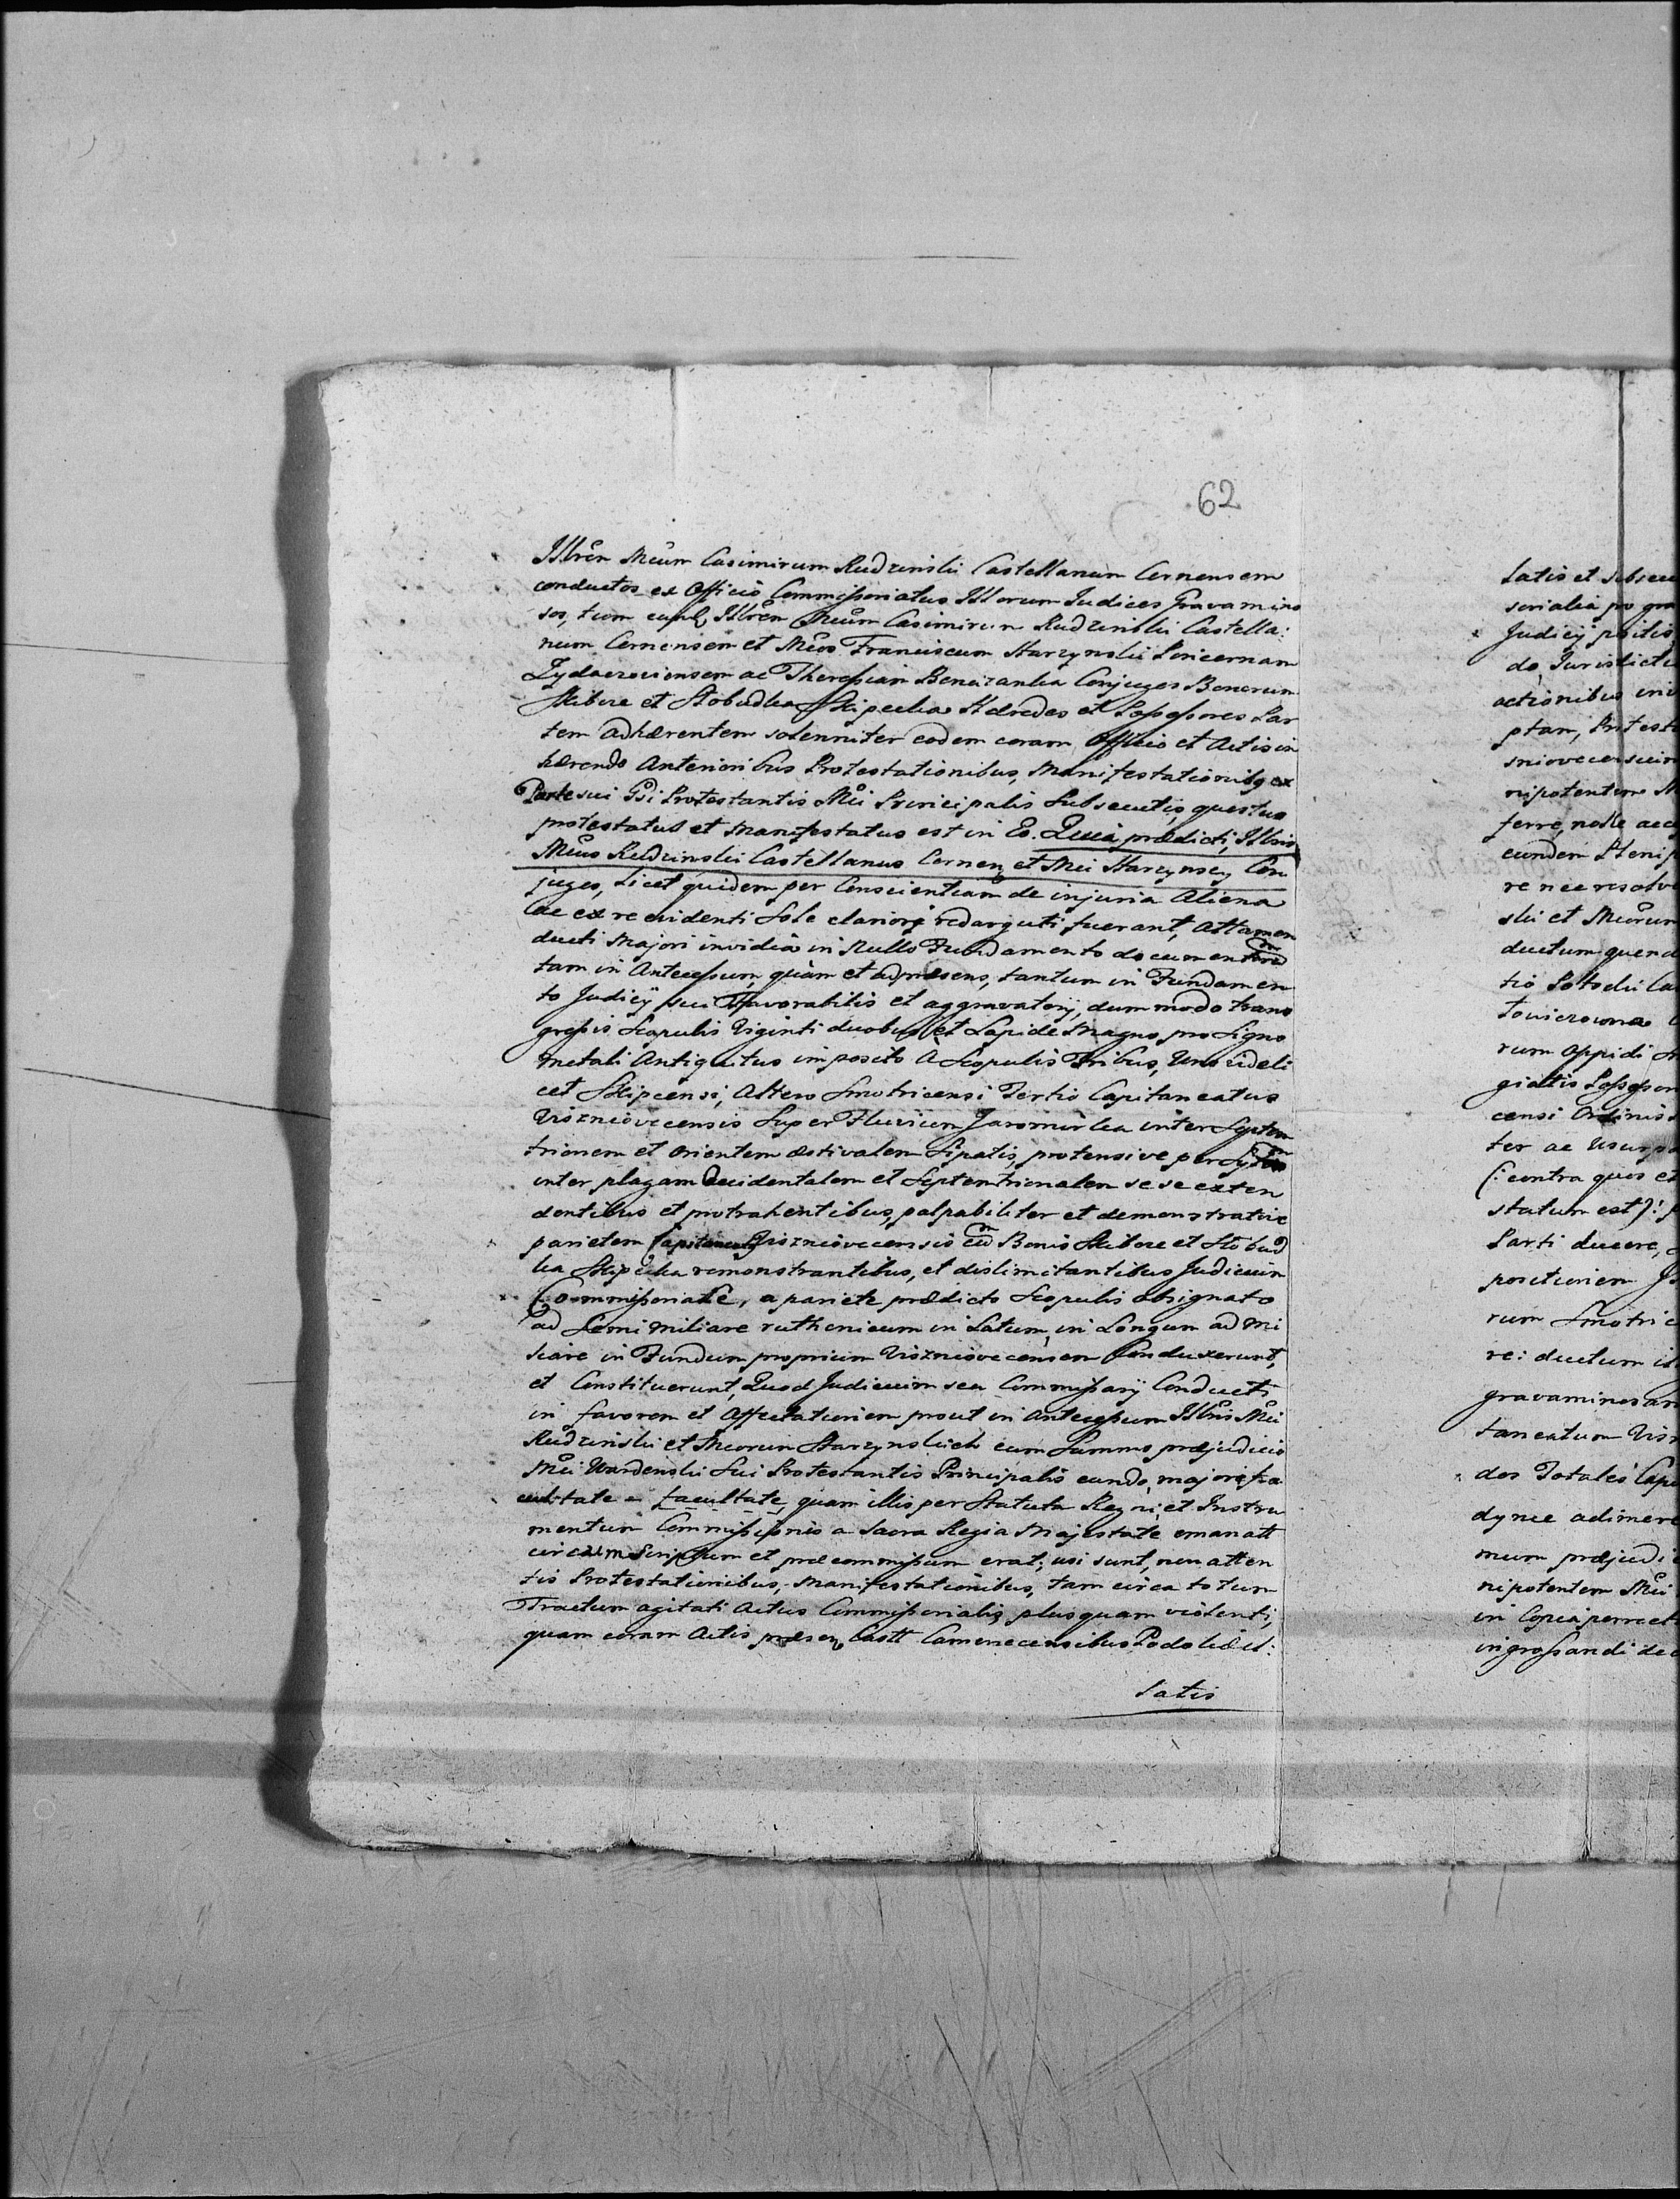 62
Illrēn Mcūm Casimirum Rudzinski Castellanum Cernensem
conductos ex Officio Commissoriatus Illorum Judices Gravamino
sos, tum eund Illrēn Mcūm Casimirum Rudzinski Castella:
num Cernensem et Mcos Franciscum Starzynski Pincernam
Zydaczoviensem ac Theressiam Conjuges Bonorum
Skibore et Slobudka Skipecka Hæredes et Possessores Par
tem adhærentem solenniter eodem coram Officio et Actis in
hærendo Anterioribus Protestationibus, Manifestationibq ex
Parte sui Gsi Protestantis Mci Principalis Subsecutis, questus
protestatus et Manifestatus est in Eo. Quia prædicti, Illris
Mcus Rudzinski Castellanus Cernen, et Mci Starzynscy Con
juges, Licet quidem per Conscientiam de injuria Aliena
ac ex re evidenti Sole clariorē redarguti fuerant, Attamen
ducti Majori invidiâ in Nullo Fundamento documentorū
tam in Antecessum, quàm et ad præsens, tantum in Fundamen
to Judicÿ sui Favorabilis et aggravatorÿ, dum modo trans
gressis Scopulis Viginti duobus et Lapide Magno pro Signo
Metali Antiquitus imposito a Scopulis Tribus, Uno videli
cet Skipcensi, Altero Smotricensi Tertio Capitaneatus
Viszniovecensis Super Fluvium Jaromirka inter Septem
trionem et Orientem æstivalem Sipatis, protensive per
inter plagam Occidentalem et Septentrionalem se se exten
dentibus et protrahentibus, palpabiliter et demonstrative
parietem Capitaneatq Viszniovecensis cū Bonis Skibore et Slobud
ka Skipecka remonstrantibus, et dislimitantibus Judicium
Commissoriale, a pariete prædicto Scopulis obsignato
ad Semi Miliare ruthenicum in Latum, in Longum ad Mi
liare in Fundum proprium Viszniovecensem Conduxerunt,
et Constituerunt, Quod Judicium seu Commissarÿ Conducti
in favorem et Affectationem prout in Antecessum Illris Mci
Rudzinski et Mcorum Starzynskich cum Summo præjudicio
Mci Wardenski Sui Protestantis Principalis eundo, majore fa
cultate = facultate, quam illis per Statuta Regni, et Instru
mentum Commissionis a Sacra Regia Majestate emanatt
circumscriptum et præcommissum erat; usi sunt, non atten
tis Protestationibus, Manifestationibus, tam circa totum
Tractum agitati Actus Commissorialis, plusquam violenti,
quam coram Actis præsen, Castt Camenecensibus Podoliæ il:
latis
latis et subsecu
sorialia pro gra
Judicÿ
do, Jurisdicti
actionibus
ptam, Protest
sniovecensium
nipotentem M
ferre, nolle
eundem Plenip
re nec resolv
ski et Mcorum
ductum quend
tio Potocki Ca
rum Oppidi
Possessor
censi Ordinis
ter ac Usurpa
(: contra quos et
statum est :)
Parti ducere,
positionem
rum Smotric
re: ductum
gravaminosam
taneatum Vis
dos Totales Cap
adimere
mum præjudi
nipotentem Mci
in Copia
ingrossandi